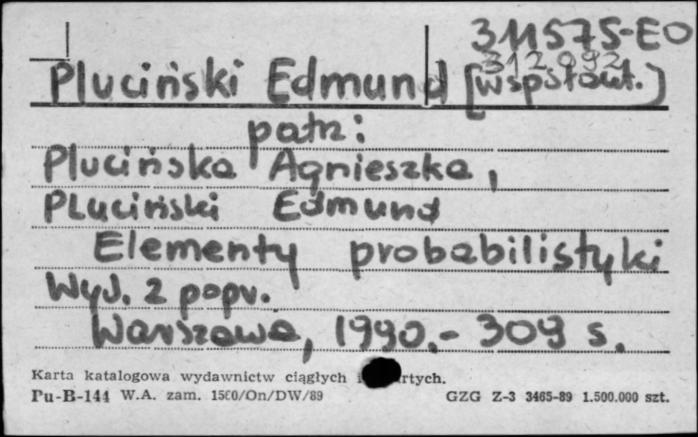 311575-EO
312092
Pluciński Edmund [współaut.]
patrz:
Plucińska Agnieszka,
Pluciński Edmund
Elementy probabilistyki
Wyd. 2 popr.
Warszawa, 1990.- 309 s.
Karta katalogowa wydawnictw ciągłych i
Pu-B-144 W.A. zam. 1560/On/DW/89 GZG Z-3 3465-89 1.500.000 szt.